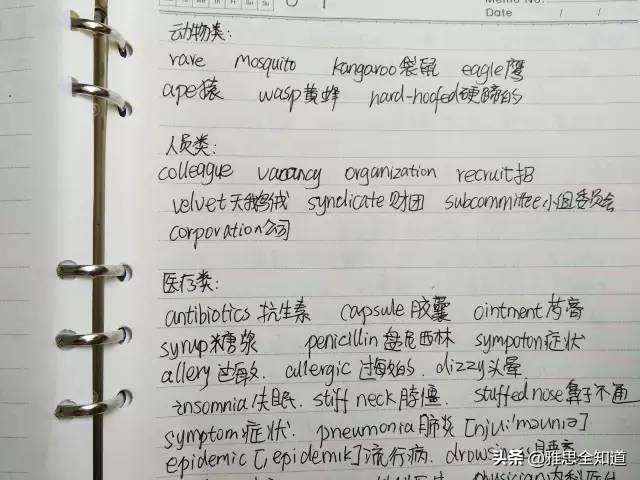 Memo No.
Date / /
动物类:
rare mosquito kangaroo袋鼠 eagle鹰
ape猿 wasp黄蜂 hard-hoofed硬蹄的
人员类:
colleague vacancy organization recruit招
velvet天鹅绒 syndicate财团 subcommittee小组委员会
corporation公司
医疗类:
antibiotics抗生素 capsule胶囊 ointment药膏
syrup糖浆 penicillin盘尼西林 sympoton症状
allery过敏. allergic过敏的. dizzy头晕
insomnia失眠. stiff neck脖僵. stuffed nose鼻子不通
symptom症状. pneumonia肺炎[nju:'məunia]
epidemic[,epidemik]流行病.
physician内科医生
头条@雅思全知道